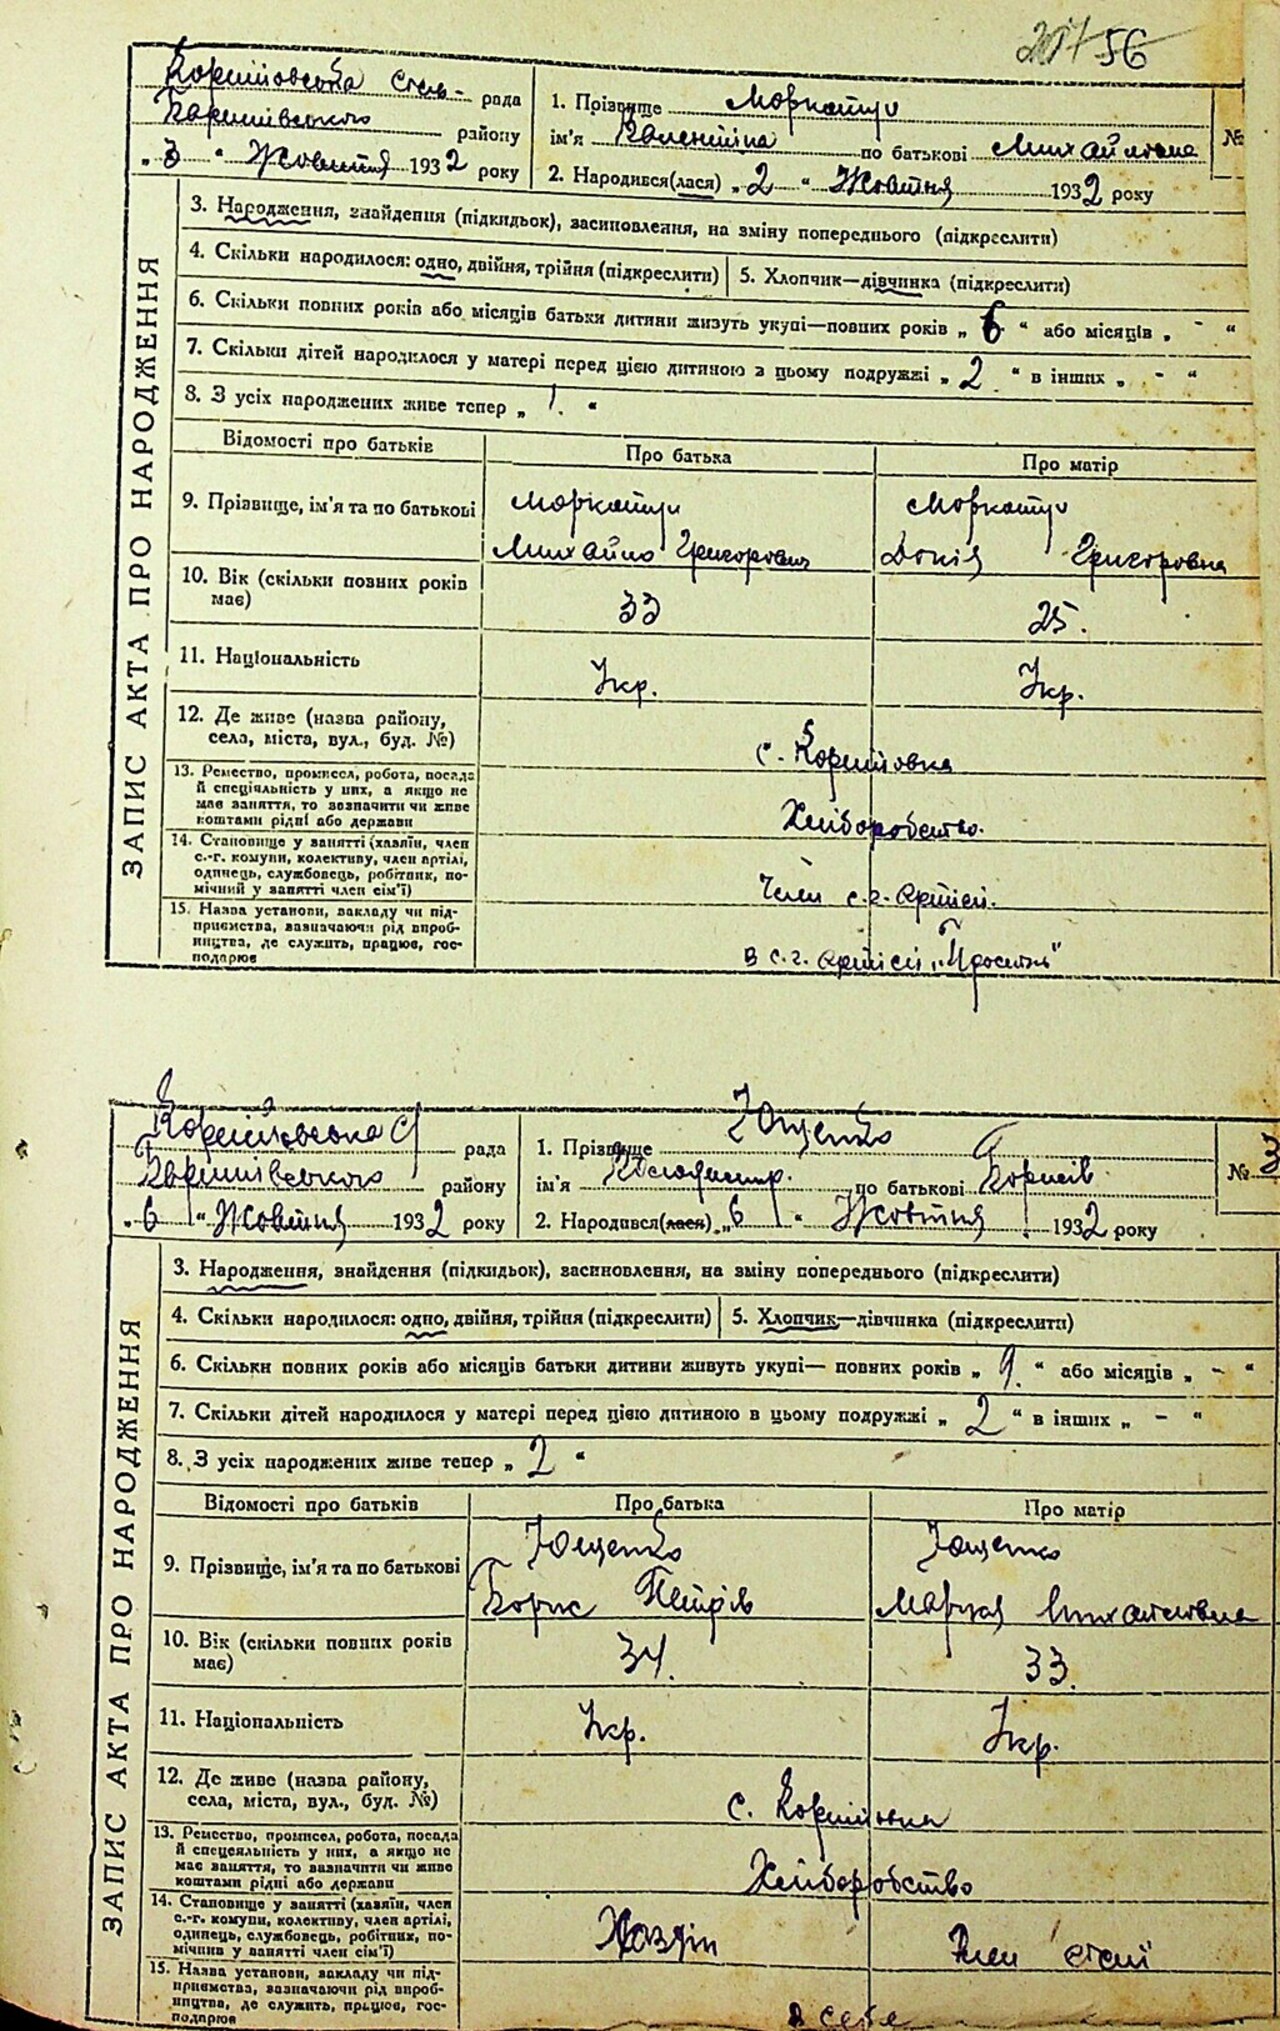 56
рада
Баришівського району
„ 3 “ Жовтня 1932 року
1. Прізвище Моркотун
ім'я Валентіна по батькові Михайловна
2. Народився(лася) „ 2 “ Жовтня 1932 року
№
ЗАПИС АКТА ПРО НАРОДЖЕННЯ
3. Народження, знайдення (підкидьок), засиновлення, на зміну попереднього (підкреслити)
4. Скільки народилося: одно, двійня, трійня (підкреслити)
5. Хлопчик—дівчинка (підкреслити)
6. Скільки повних років або місяців батьки дитини живуть укупі—повних років „ 6 “ або місяців „ - “
7. Скільки дітей народилося у матері перед цією дитиною з цьому подружжі „ 2 “ в інших „ - “
8. З усіх народжених живе тепер „ 1. “
Відомості про батьків
Про батька
Про матір
9. Прізвище, ім'я та по батькові
Моркотун
Михайло Григорович
Моркотун
Докія Григоровна
10. Вік (скільки повних років
має)
33
25.
11. Національність
Укр.
Укр.
12. Де живе (назва району,
села, міста, вул., буд. №)
с.
13. Ремество, промисел, робота, посада
й спеціяльність у них, а якщо не
має заняття, то зазначити чи живе
коштами рідні або держави
Хліборобство.
14. Становище у занятті (хазяїн, член
с.-г. комуни, колективу, член артілі,
одинець, службовець, робітник, по-
мічний у занятті член сім'ї)
Член с.г. артілі.
15. Назва установи, закладу чи під-
приємства, зазначаючи рід вироб-
ництва, де служить, працює, гос-
подарює
в с.г. артілі
рада
Баришівського району
„ 6 “ Жовтня 1932 року
1. Прізвище Ющенко
ім'я Володимир. по батькові Борисів
2. Народився(лася) „ 6 “ Жовтня 1932 року
№ 3
ЗАПИС АКТА ПРО НАРОДЖЕННЯ
3. Народження, знайдення (підкидьок), засиновлення, на зміну попереднього (підкреслити)
4. Скільки народилося: одно, двійня, трійня (підкреслити)
5. Хлопчик—дівчинка (підкреслити)
6. Скільки повних років або місяців батьки дитини живуть укупі— повних років „ 9. “ або місяців „ - “
7. Скільки дітей народилося у матері перед цією дитиною в цьому подружжі „ 2 “ в інших „ - “
8. З усіх народжених живе тепер „ 2 “
Відомості про батьків
Про батька
Про матір
9. Прізвище, ім'я та по батькові
Ющенко
Борис Петрів
Ющенко
Маруся Михайловна
10. Вік (скільки повних років
має)
34.
33.
11. Національність
Укр.
Укр.
12. Де живе (назва району,
села, міста, вул., буд. №)
с.
13. Ремество, промисел, робота, посада
й спецеяльність у них, а якщо не
має заняття, то зазначити чи живе
коштами рідні або держави
Хліборобство
14. Становище у занятті (хазяїн, член
с.-г. комуни, колективу, член артілі,
одинець, службовець, робітник, по-
мічний у занятті член сім'ї)
Хазяін
Член сімї
15. Назва установи, закладу чи під-
приємства, зазначаючи рід вироб-
ництва, де служить, працює, гос-
подарює
в себе